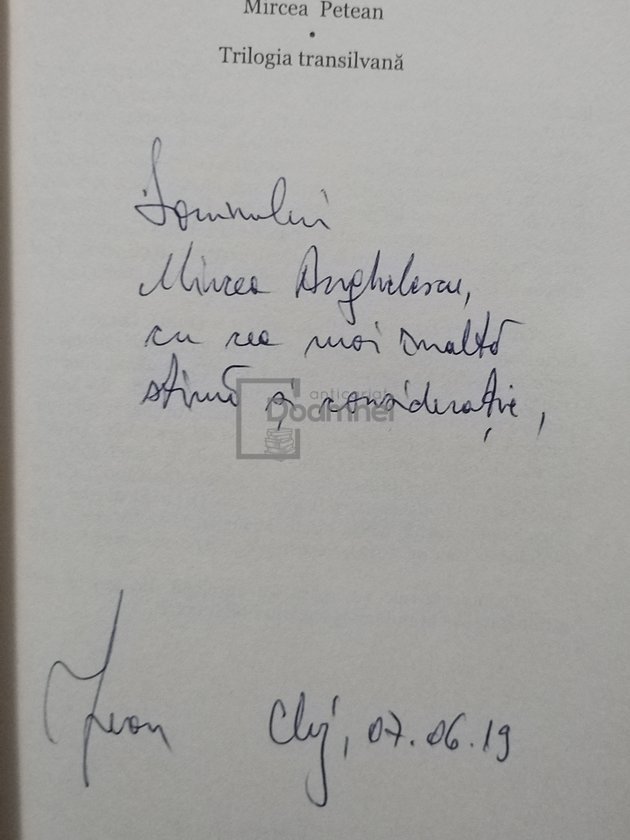 Mircea Petean
•
Trilogia transilvană
Domnului
Mircea Anghelescu,
cu cea mai înaltă
stimă și considerație,
anticariat
Doamnei
Cluj, 07.06.19